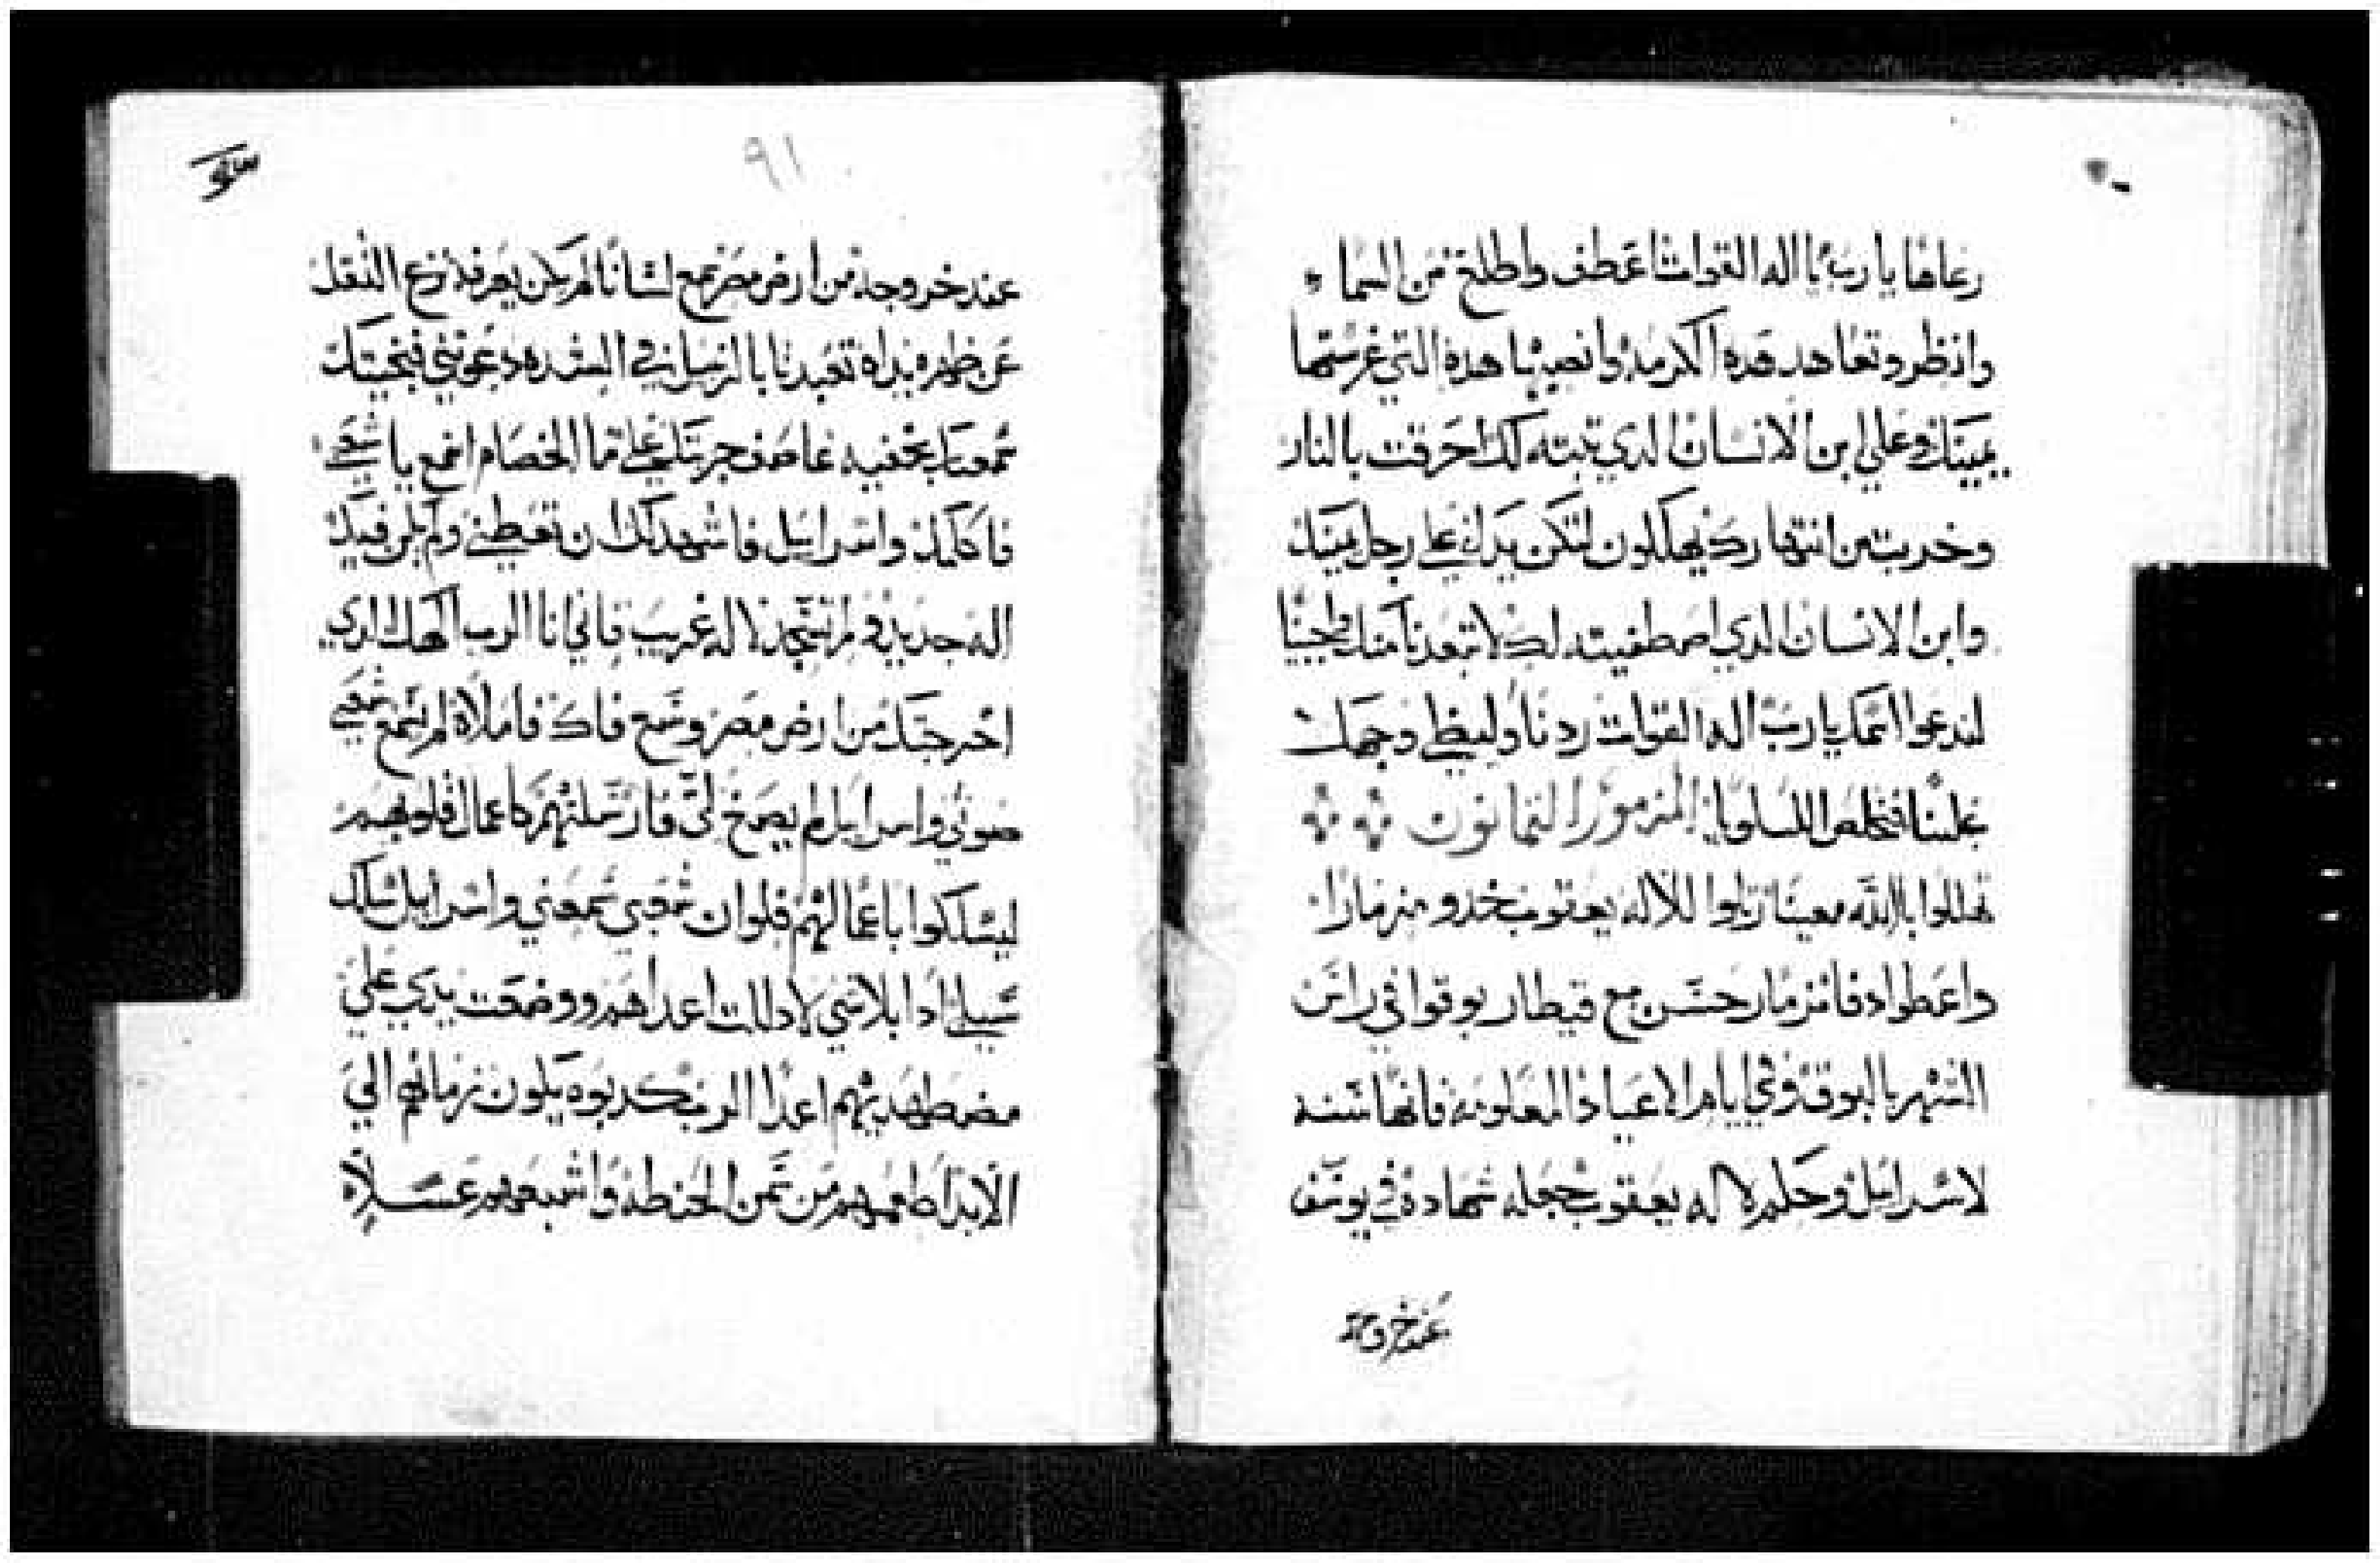 رعاها يا رب يا اله القوات اعطف واطلع من السماء
وانظر وتعاهد هده الكرمه وانصب هده التي غرستها
يمينك وعلي ابن الانسان الدي تبته لك احرقت بالنار
وخربت من انتهارك يهلكون لتكن يدك علي رجل يمينك
وابن الانسان الدي اصطفيته لك لا تبعدنا منك وتحيينا
لندعوا اسمك يا رب اله القوات ردنا وليظي وجهك
علينا فنخلص المزمور التمانون
تهللوا بالله معيننا رتلوا للاله يعقوب خدو مزمارا
واعطوا دفا مزمار حسن مع قيطار بوقوا في راس
الشهر بالبوق وفي ايام الاعياد المعلومه فانها سنه
لاسرائيل وحكم لاله يعقوب جعله شهادة في يوسف
عند خروجه
٩١
عند خروجه من ارض مصر سمع لسانا لم يكن يعرفه نزع التقل
عن ظهره يداه تعبدتا بالزنبيل في الشده دعوتني فنجيتك
سمعتك بخفيه عاصف جربتك علي ما الخصام اسمع يا شعبي
فاكلمك واسرائيل فاشهد لك ان تعطني ولم يكن فيك
اله جديد ولم تسجد لاله غريب فاني انا الرب الهك الدي
اخرجتك من ارض مصر وسع فاك فاملاه لم يسمع شعبي
صوتي واسرايل لم يصغ لي فارسلتهم كاعمال قلوبهم
ليسلكوا باعمالهم فلوان شعبي سمعني واسرايل سلك
سبيلي ادا بلاشي لادللت اعداهم ووضعت يدي علي
مضطهديهم اعدا الرب كدبوه يكون زمانهم الي
الابد اطعمهم من سمن الحنطه واشبعهم عسلا